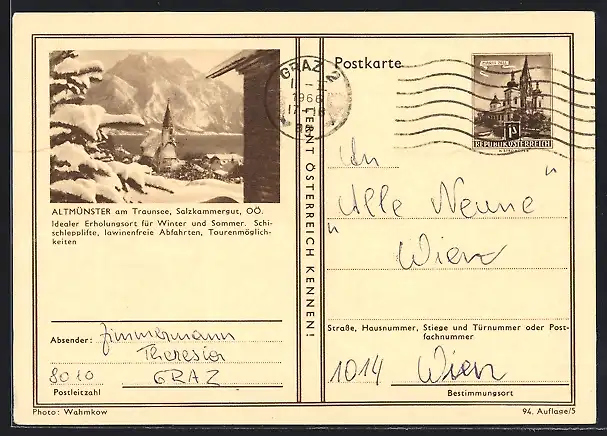 Postkarte
GRAZ 2
1966
MARIA ZELL
1S
REPUBLIK ÖSTERREICH
LERNT ÖSTERREICH KENNEN!
ALTMÜNSTER am Traunsee, Salzkammergut, OÖ.
Idealer Erholungsort für Winter und Sommer. Schi-
schlepplifte, lawinenfreie Abfahrten, Tourenmöglich-
keiten
An
"Alle Neune"
Wien
Straße, Hausnummer, Stiege und Türnummer oder Post-
fachnummer
1014 Wien
Bestimmungsort
Absender: Zimmermann
Theresia
8010 GRAZ
Postleitzahl
Photo: Wahmkow
94. Auflage/5